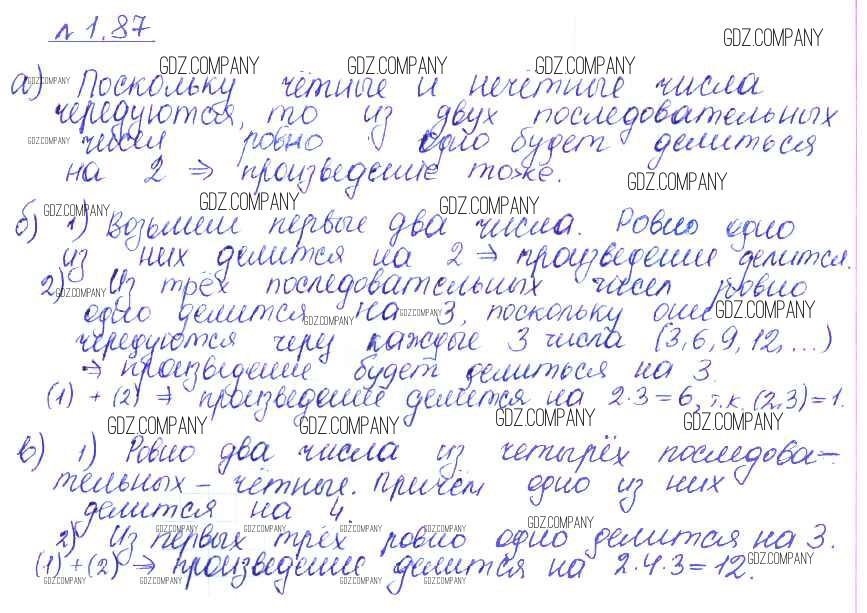 № 1.87
GDZ.COMPANY
GDZ.COMPANY GDZ.COMPANY GDZ.COMPANY
а) Поскольку чётные и нечётные числа
GDZ.COMPANY
чередуются, то из двух последовательных
GDZ.COMPANY
чисел ровно одно будет делиться
на 2 ⇒ произведение тоже.
GDZ.COMPANY
GDZ.COMPANY GDZ.COMPANY GDZ.COMPANY
б) 1) Возьмем первые два числа. Ровно одно
из них делится на 2 ⇒ произведение делится.
2) Из трёх последовательных чисел ровно
GDZ.COMPANY
одно делится на 3, поскольку они
GDZ.COMPANY GDZ.COMPANY GDZ.COMPANY
чередуются через каждые 3 числа (3, 6, 9, 12, ...)
⇒ произведение будет делиться на 3.
(1) + (2) ⇒ произведение делится на 2·3=6, т.к. (2,3)=1.
GDZ.COMPANY GDZ.COMPANY GDZ.COMPANY GDZ.COMPANY
в) 1) Ровно два числа из четырёх последова-
тельных - чётные. Причём одно из них
делится на 4.
GDZ.COMPANY
GDZ.COMPANY GDZ.COMPANY GDZ.COMPANY GDZ.COMPANY
2) Из первых трёх ровно одно делится на 3.
(1) + (2) ⇒ произведение делится на 2·4·3=12.
GDZ.COMPANY
GDZ.COMPANY GDZ.COMPANY GDZ.COMPANY GDZ.COMPANY